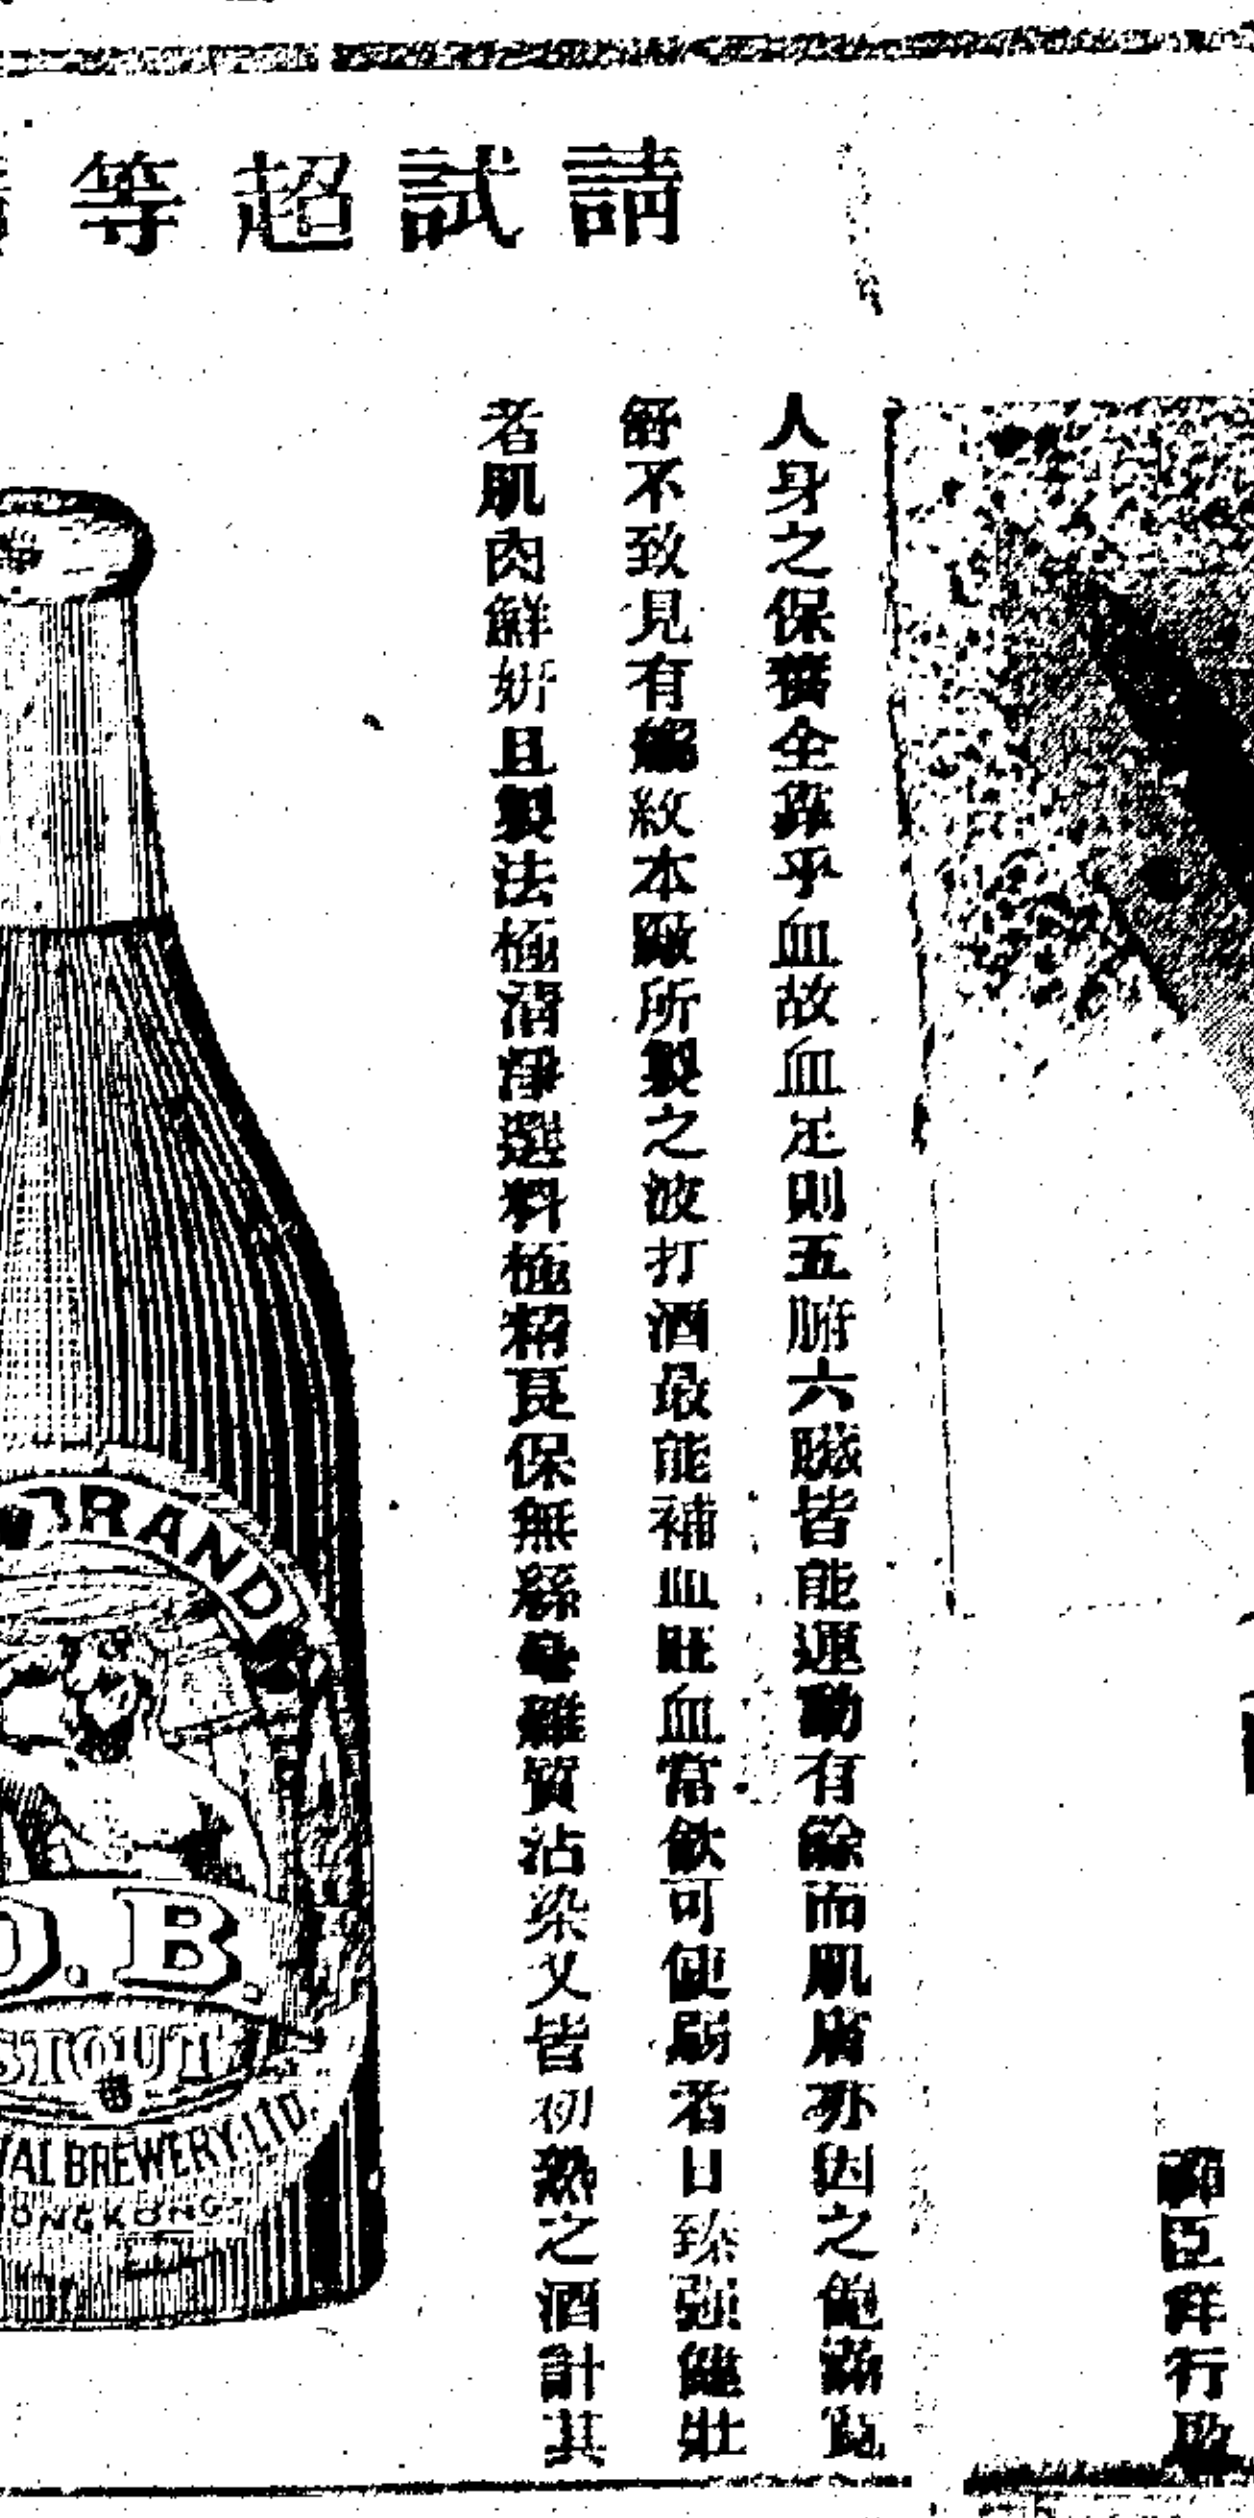 請試超等
人身之保獲全藉乎血故血足則五腑六臟皆能運動有餘而肌膚亦因之飽滿寬
舒不致見有縐紋本廠所製之波打酒最能補血旺血常飲可使弱者日臻强健壯
者肌肉鮮妍且製法極清凈選料極精良保無絲毫雜質沾染又皆初熱之酒計其
BRAND
O.B.
STOUT
BREWERY LTD.
臣洋行